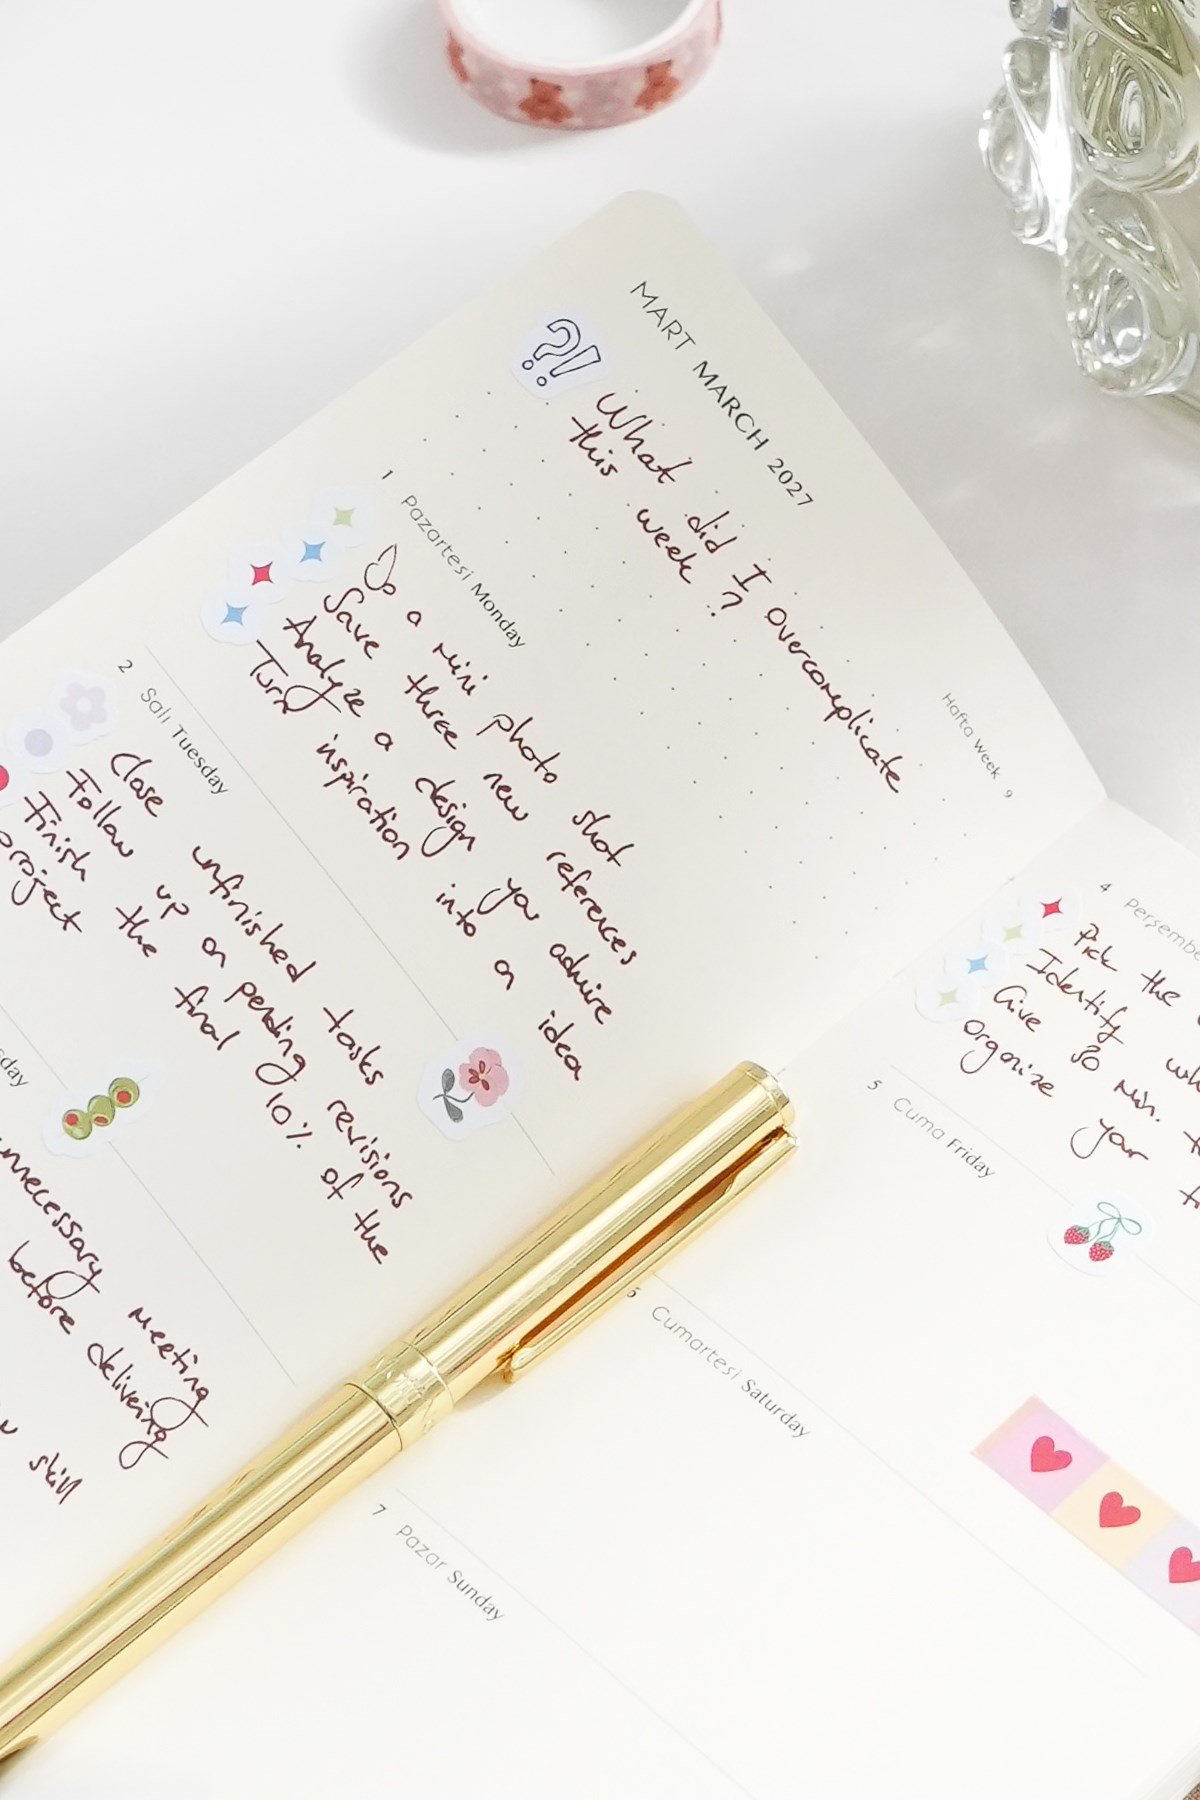 MART MARCH 2027
?!
What did I overcomplicate
this week?
Hafta Week 9
1 Pazartesi Monday
Do a mini photo shot
Save three new references
Analyze a design you admire
Turn inspiration into a idea
2 Salı Tuesday
Close unfinished tasks
Follow up on pending revisions
Finish the final 10% of the
project
meeting
before delivering
skill
4
Pick the
Identify
Give 30 min.
Organize your
5 Cuma Friday
6 Cumartesi Saturday
7 Pazar Sunday